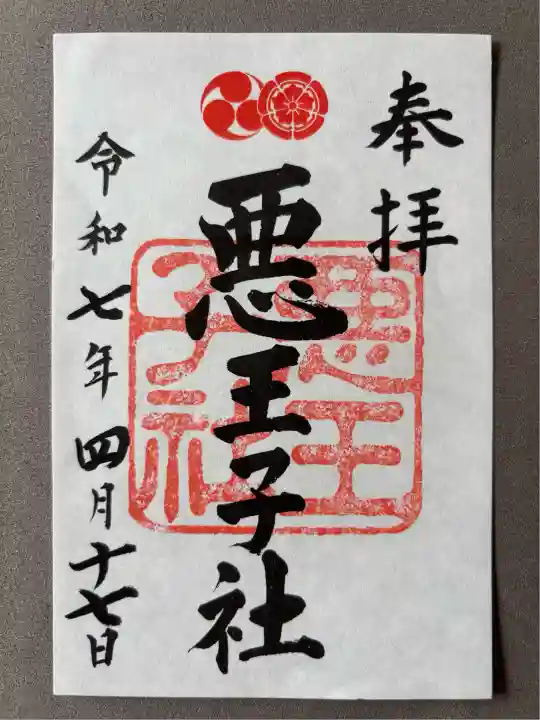 奉拝
悪王子社
悪王子社
令和七年四月十七日